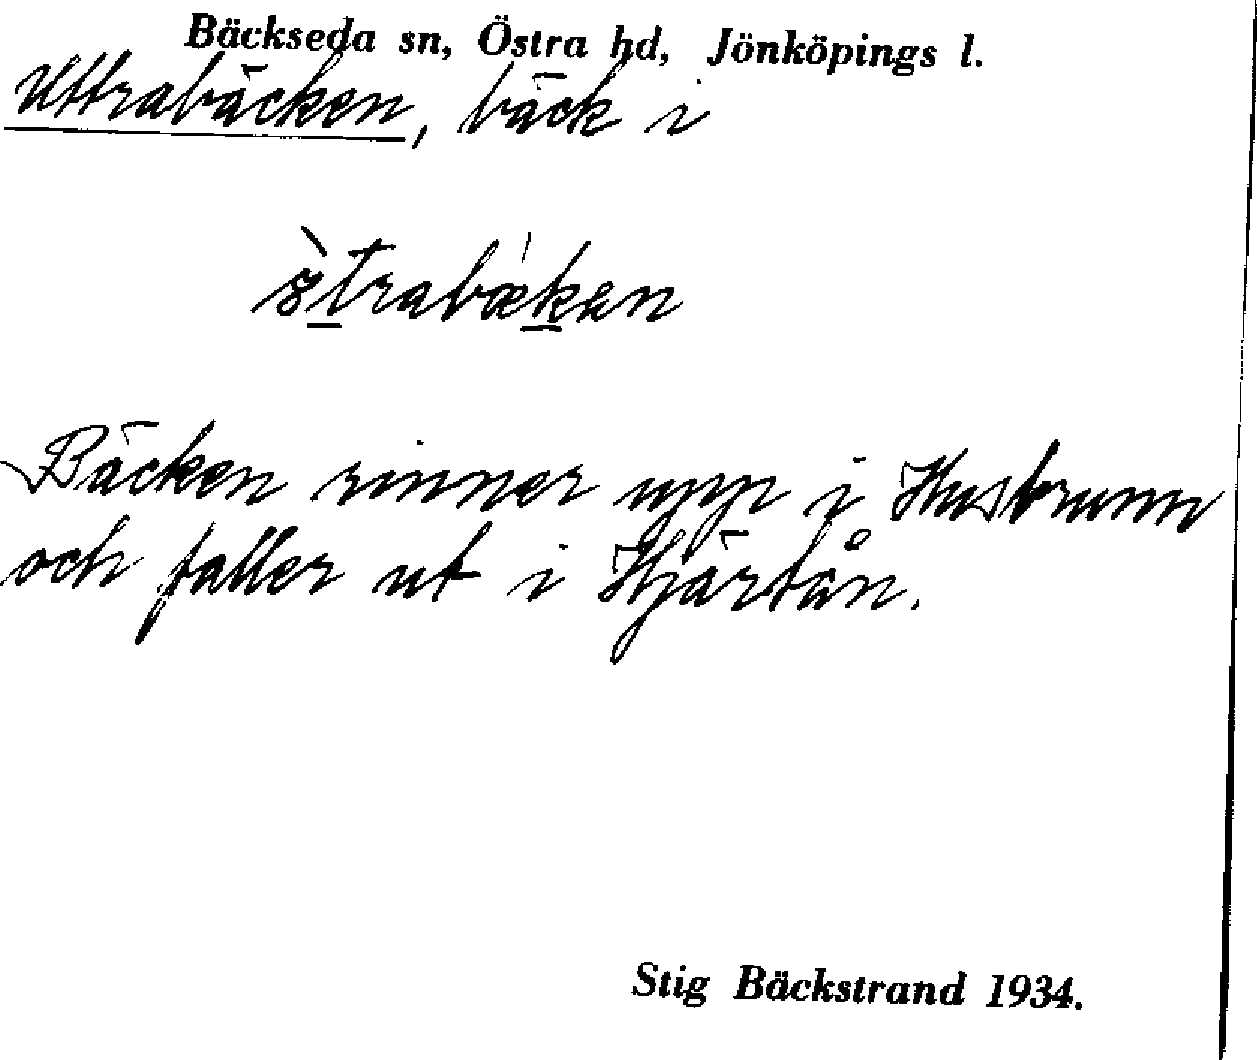 Bäckseda sn, Östra hd, Jönköpings l.
Uttrabäcken, bäck i
Bäcken rinner upp i Husbrunn
och faller ut i Hjärtån.
Stig Bäckstrand 1934.